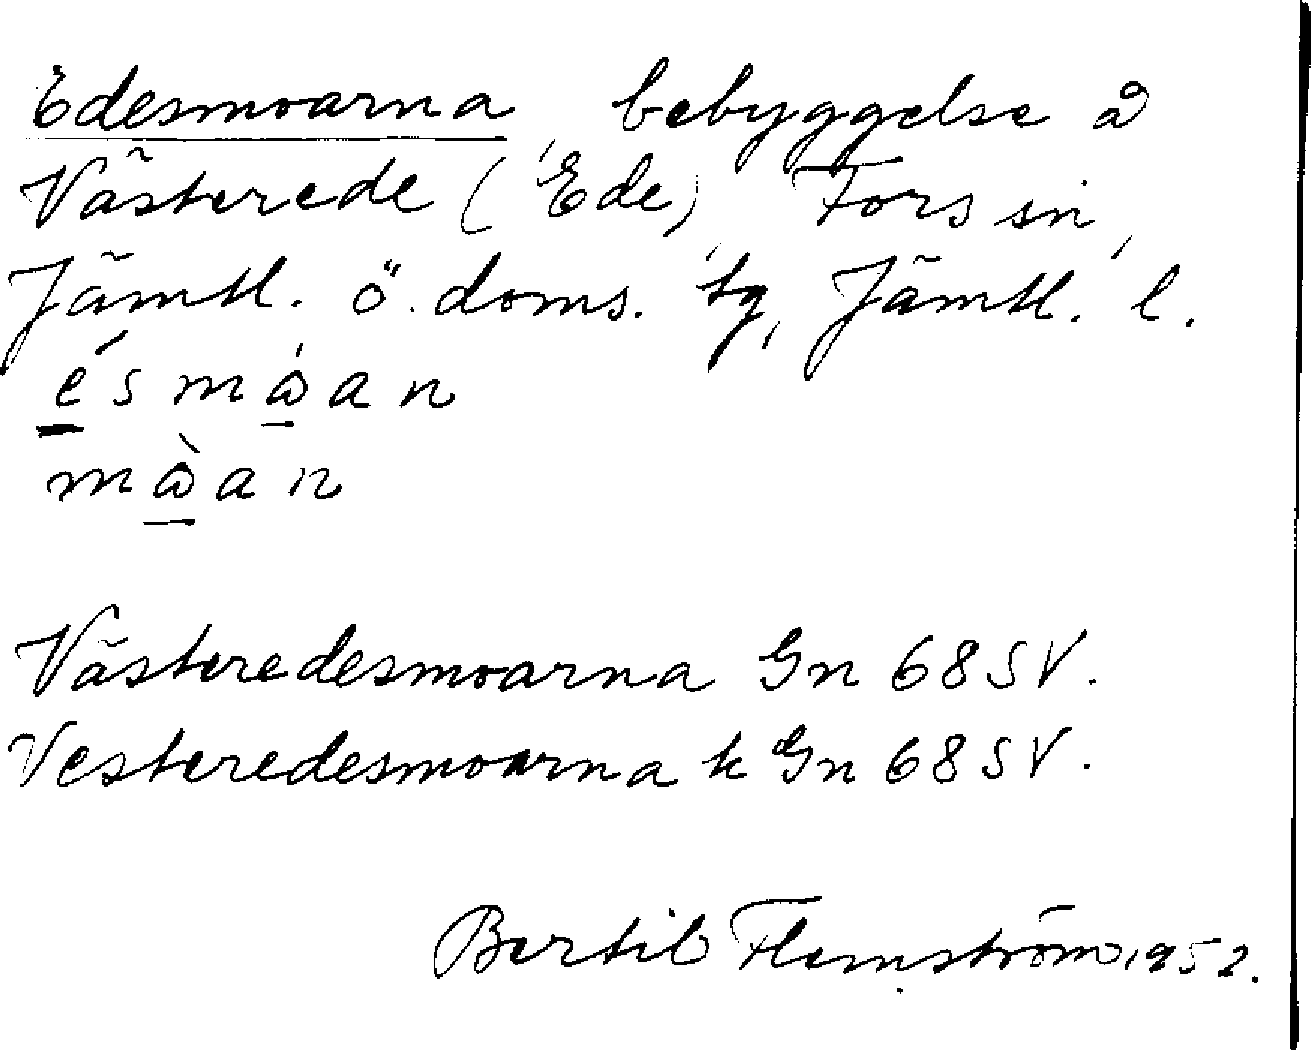 Edesmoarna, bebyggelse å
Västerede (Ede), Fors sn,
Jämtl. ö. doms. tg, Jämtl. l.
é s m å̀ a n
m å̀ a n
Västeredesmoarna Gn 68 SV.
Vesteredesmoarna k Gn 68 SV.
Bertil Flemström 1952.